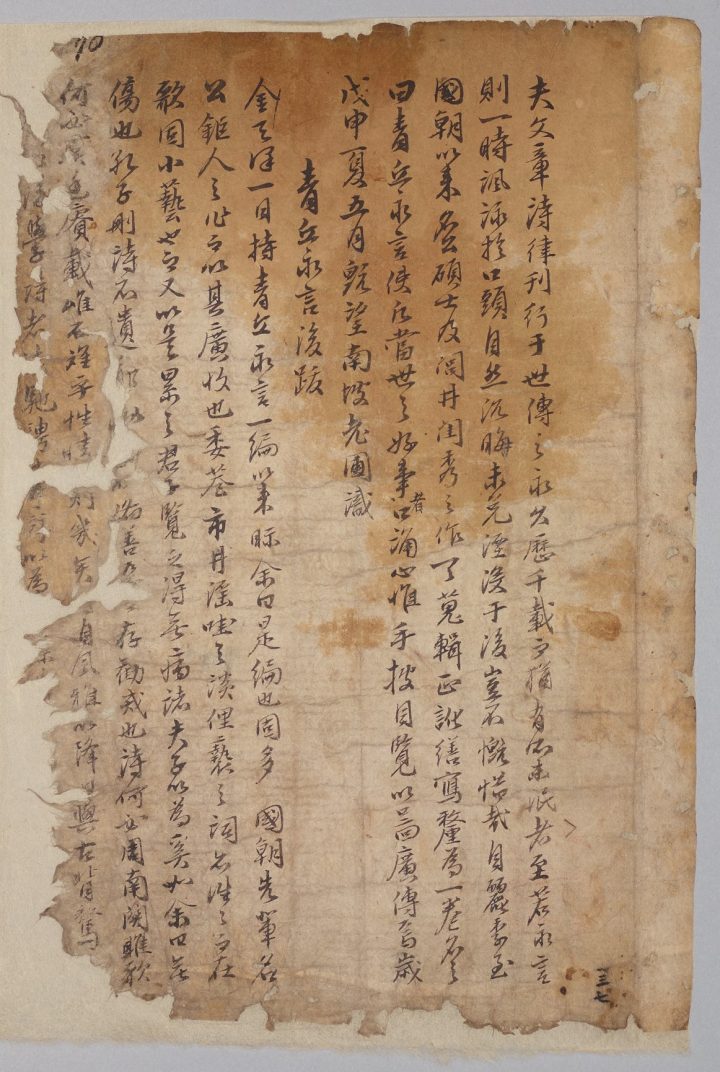 夫文章詩律刊行于世傳之永久歷千載而猶有所未泯者至若永言
則一時諷詠於口頭自然沉晦未免湮沒于後豈不慨惜哉自麗季至
國朝以來名公碩士及閭井閨秀之作一一蒐輯正訛繕寫釐爲一卷名之
曰青丘永言使凡當世之好事者口誦心惟手披目覽以啚廣傳焉歲
戊申夏五月旣望南坡老圃識
青丘永言後跋
金天澤一日持青丘永言一編以來眎余曰是編也固多 國朝先輩名
公鉅人之作而以其廣收也委巷市井淫哇之談俚褻之詞亦往往而在
歌固小藝也而又以是累之君子覽之得無病諸夫子以爲奚如余曰無
傷也孔子刪詩不遺 備善惡 存勸戒也詩何必周南關雎歌
何必虞廷賡載惟不離乎性情則幾矣 自風雅以降日與古背騖
後學詩者 馳騁 以爲
70
三七